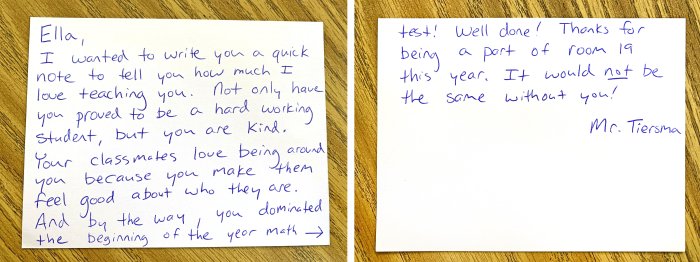 Ella,
I wanted to write you a quick
note to tell you how much I
love teaching you. Not only have
you proved to be a hard working
student, but you are kind.
Your classmates love being around
you because you make them
feel good about who they are.
And by the way, you dominated
the beginning of the year math →
test! Well done! Thanks for
being a part of room 19
this year. It would not be
the same without you!
Mr. Tiersma